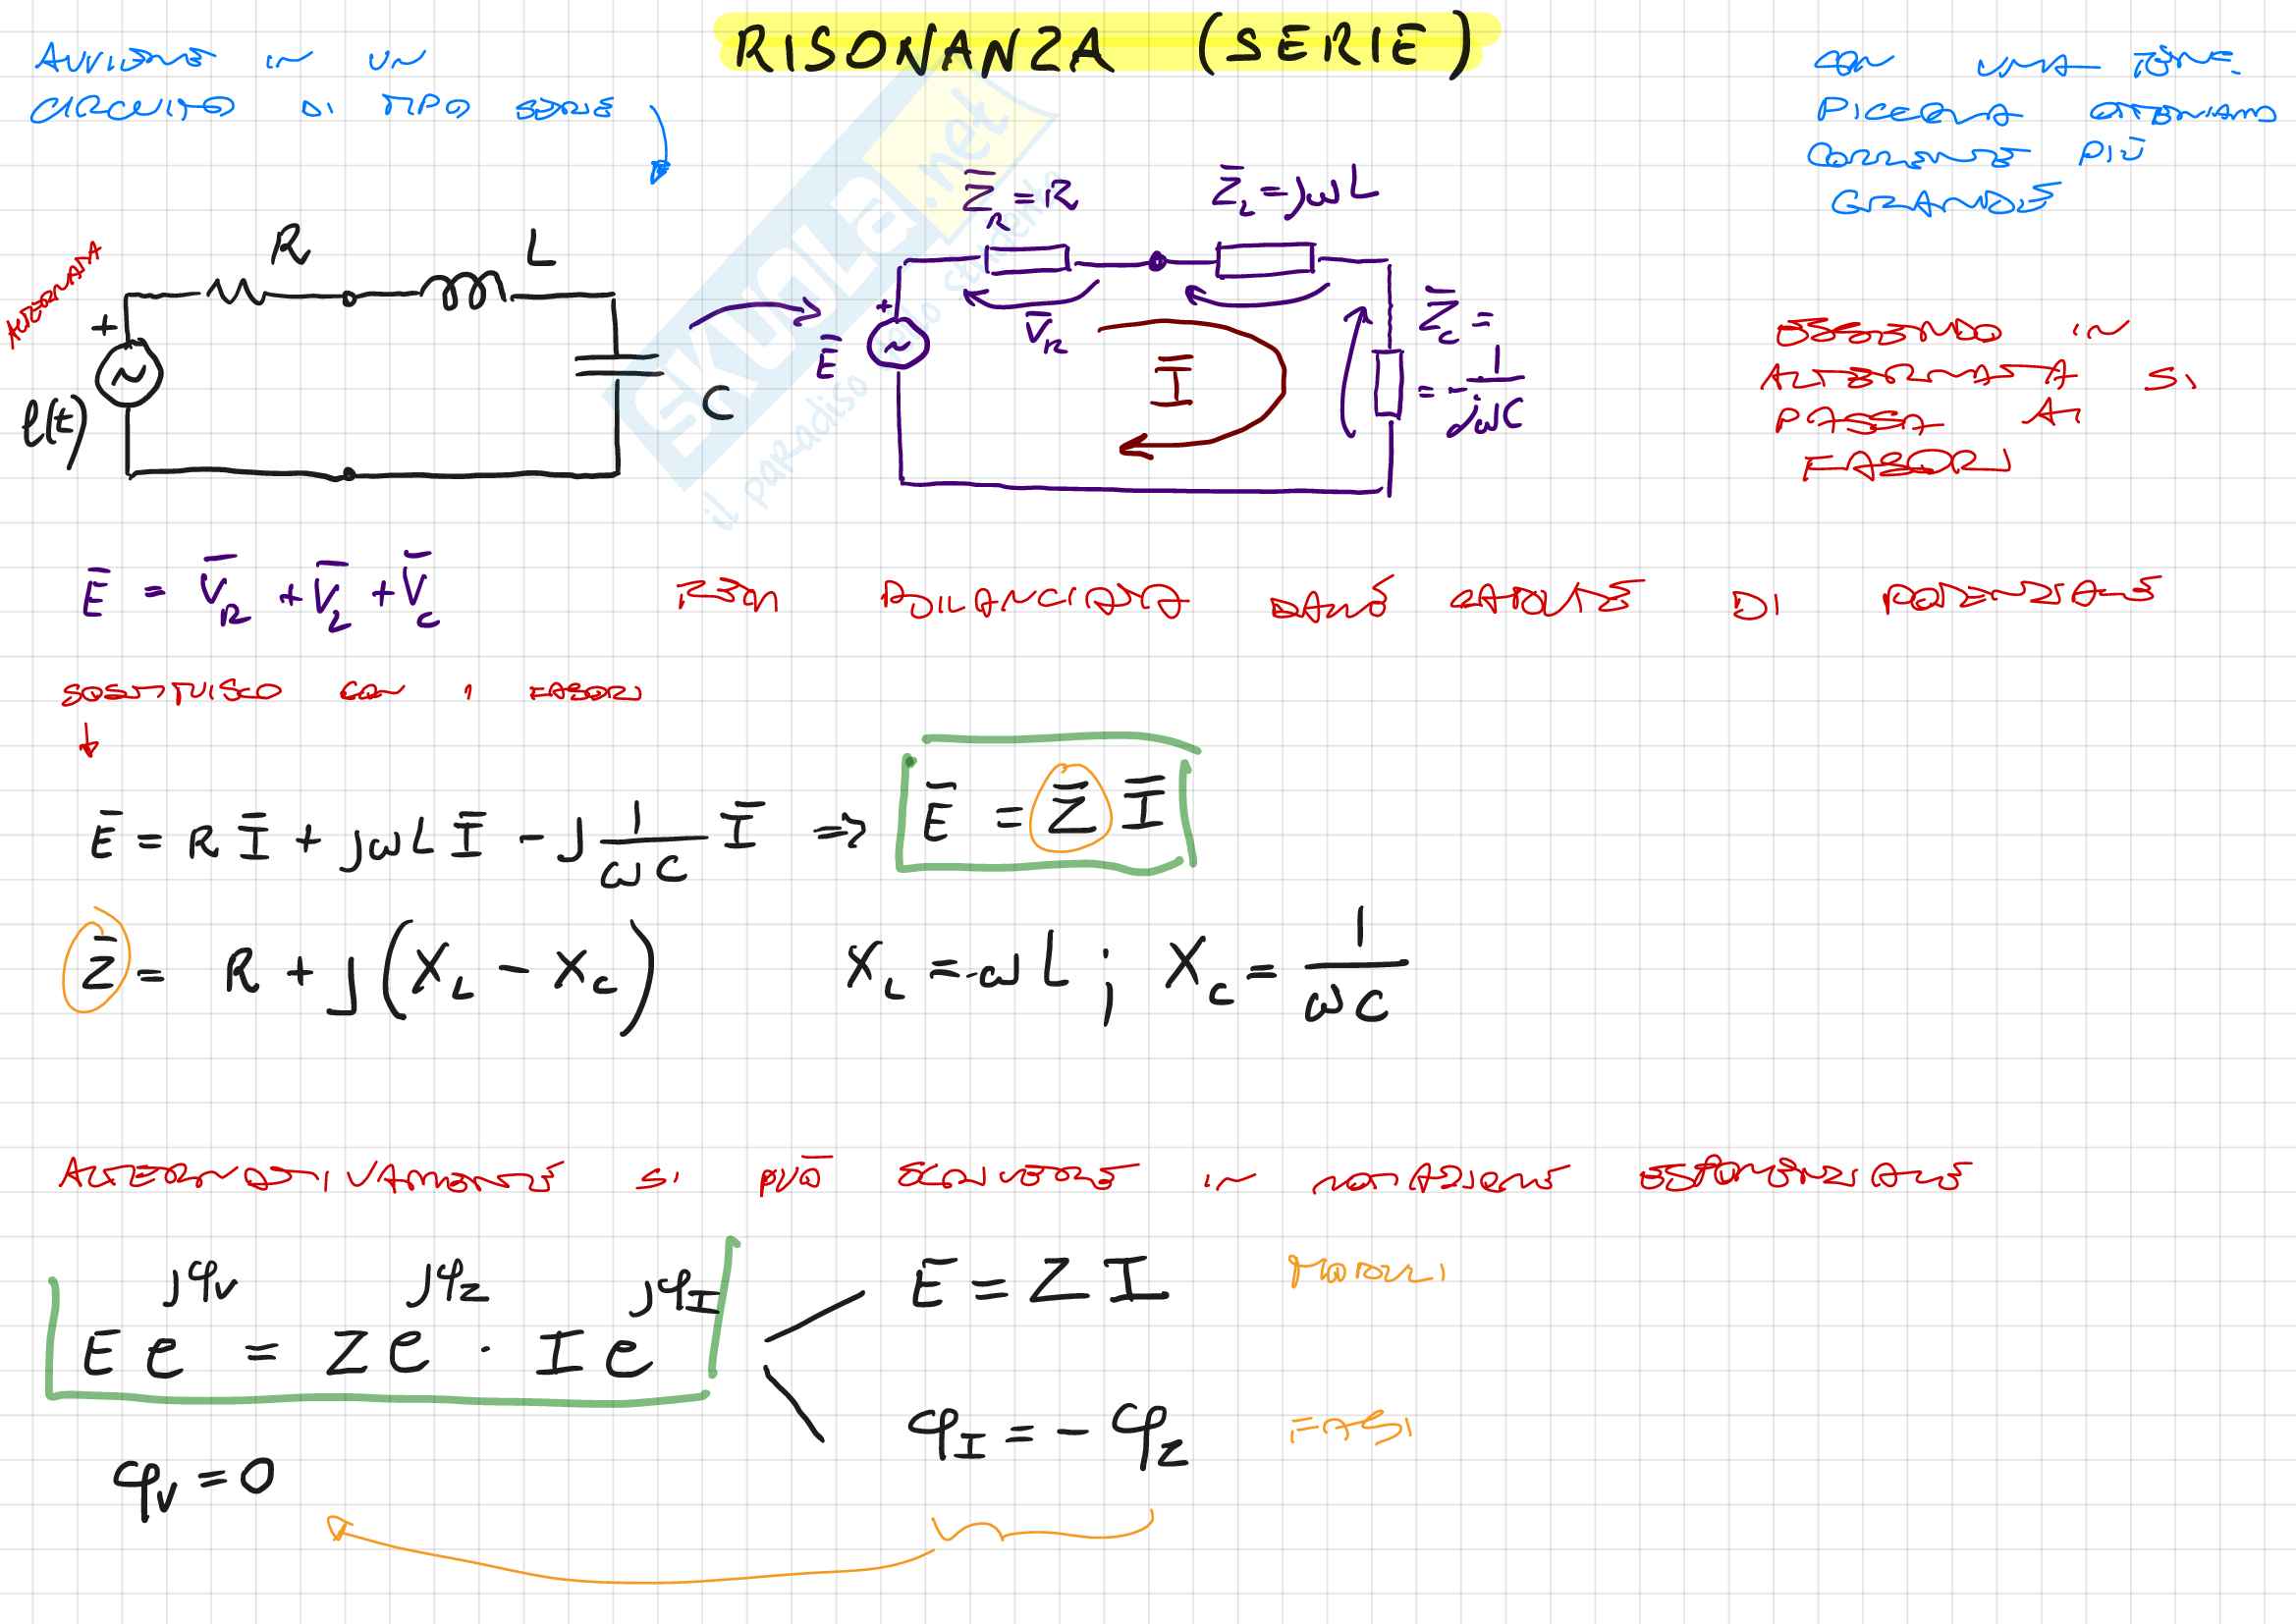 RISONANZA (SERIE)
AVVIENE IN UN
CIRCUITO DI TIPO SERIE
CON UNA TENS.
PICCOLA OTTENIAMO
CORRENTE PIÙ
GRANDE
ALTERNATA
R L
+
e(t)
C
Z̄_R = R Z̄_L = jωL
+
Ē
V̄_R
Ī
Z̄_C =
= 1/jωC
ESSENDO IN
ALTERNATA SI
PASSA AI
FASORI
SKUOLA.net
il paradiso dello studente
Ē = V̄_R + V̄_L + V̄_C BILANCIATA DALLE CADUTE DI POTENZIALE
SOSTITUISCO CON I FASORI
Ē = R Ī + jωL Ī - j 1/ωC Ī => Ē = Z̄ Ī
Z̄ = R + j(X_L - X_C) X_L = ωL ; X_C = 1/ωC
ALTERNATIVAMENTE SI PUÒ SCRIVERE IN NOTAZIONE ESPONENZIALE
E e^jφ_V = Z e^jφ_Z · I e^jφ_I
E = Z I MODULI
φ_I = - φ_Z FASI
φ_V = 0